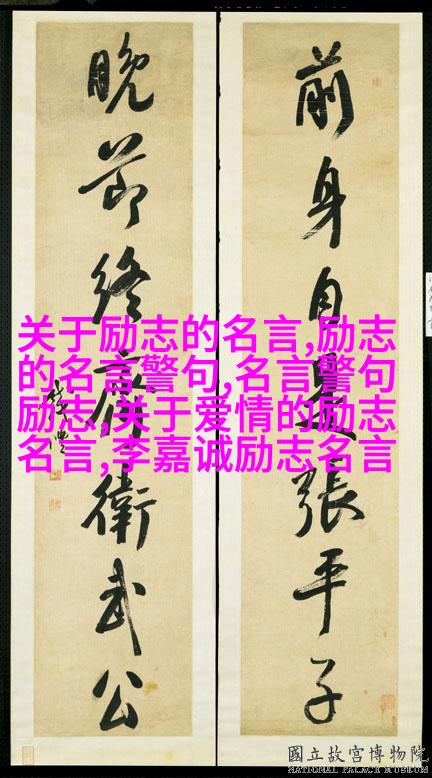 前身自是張平子
晚節終
衛武公
关于励志的名言,励志
的名言警句,名言警句
励志,关于爱情的励志
名言,李嘉诚励志名言
國立故宮博物院
NATIONAL PALACE MUSEUM